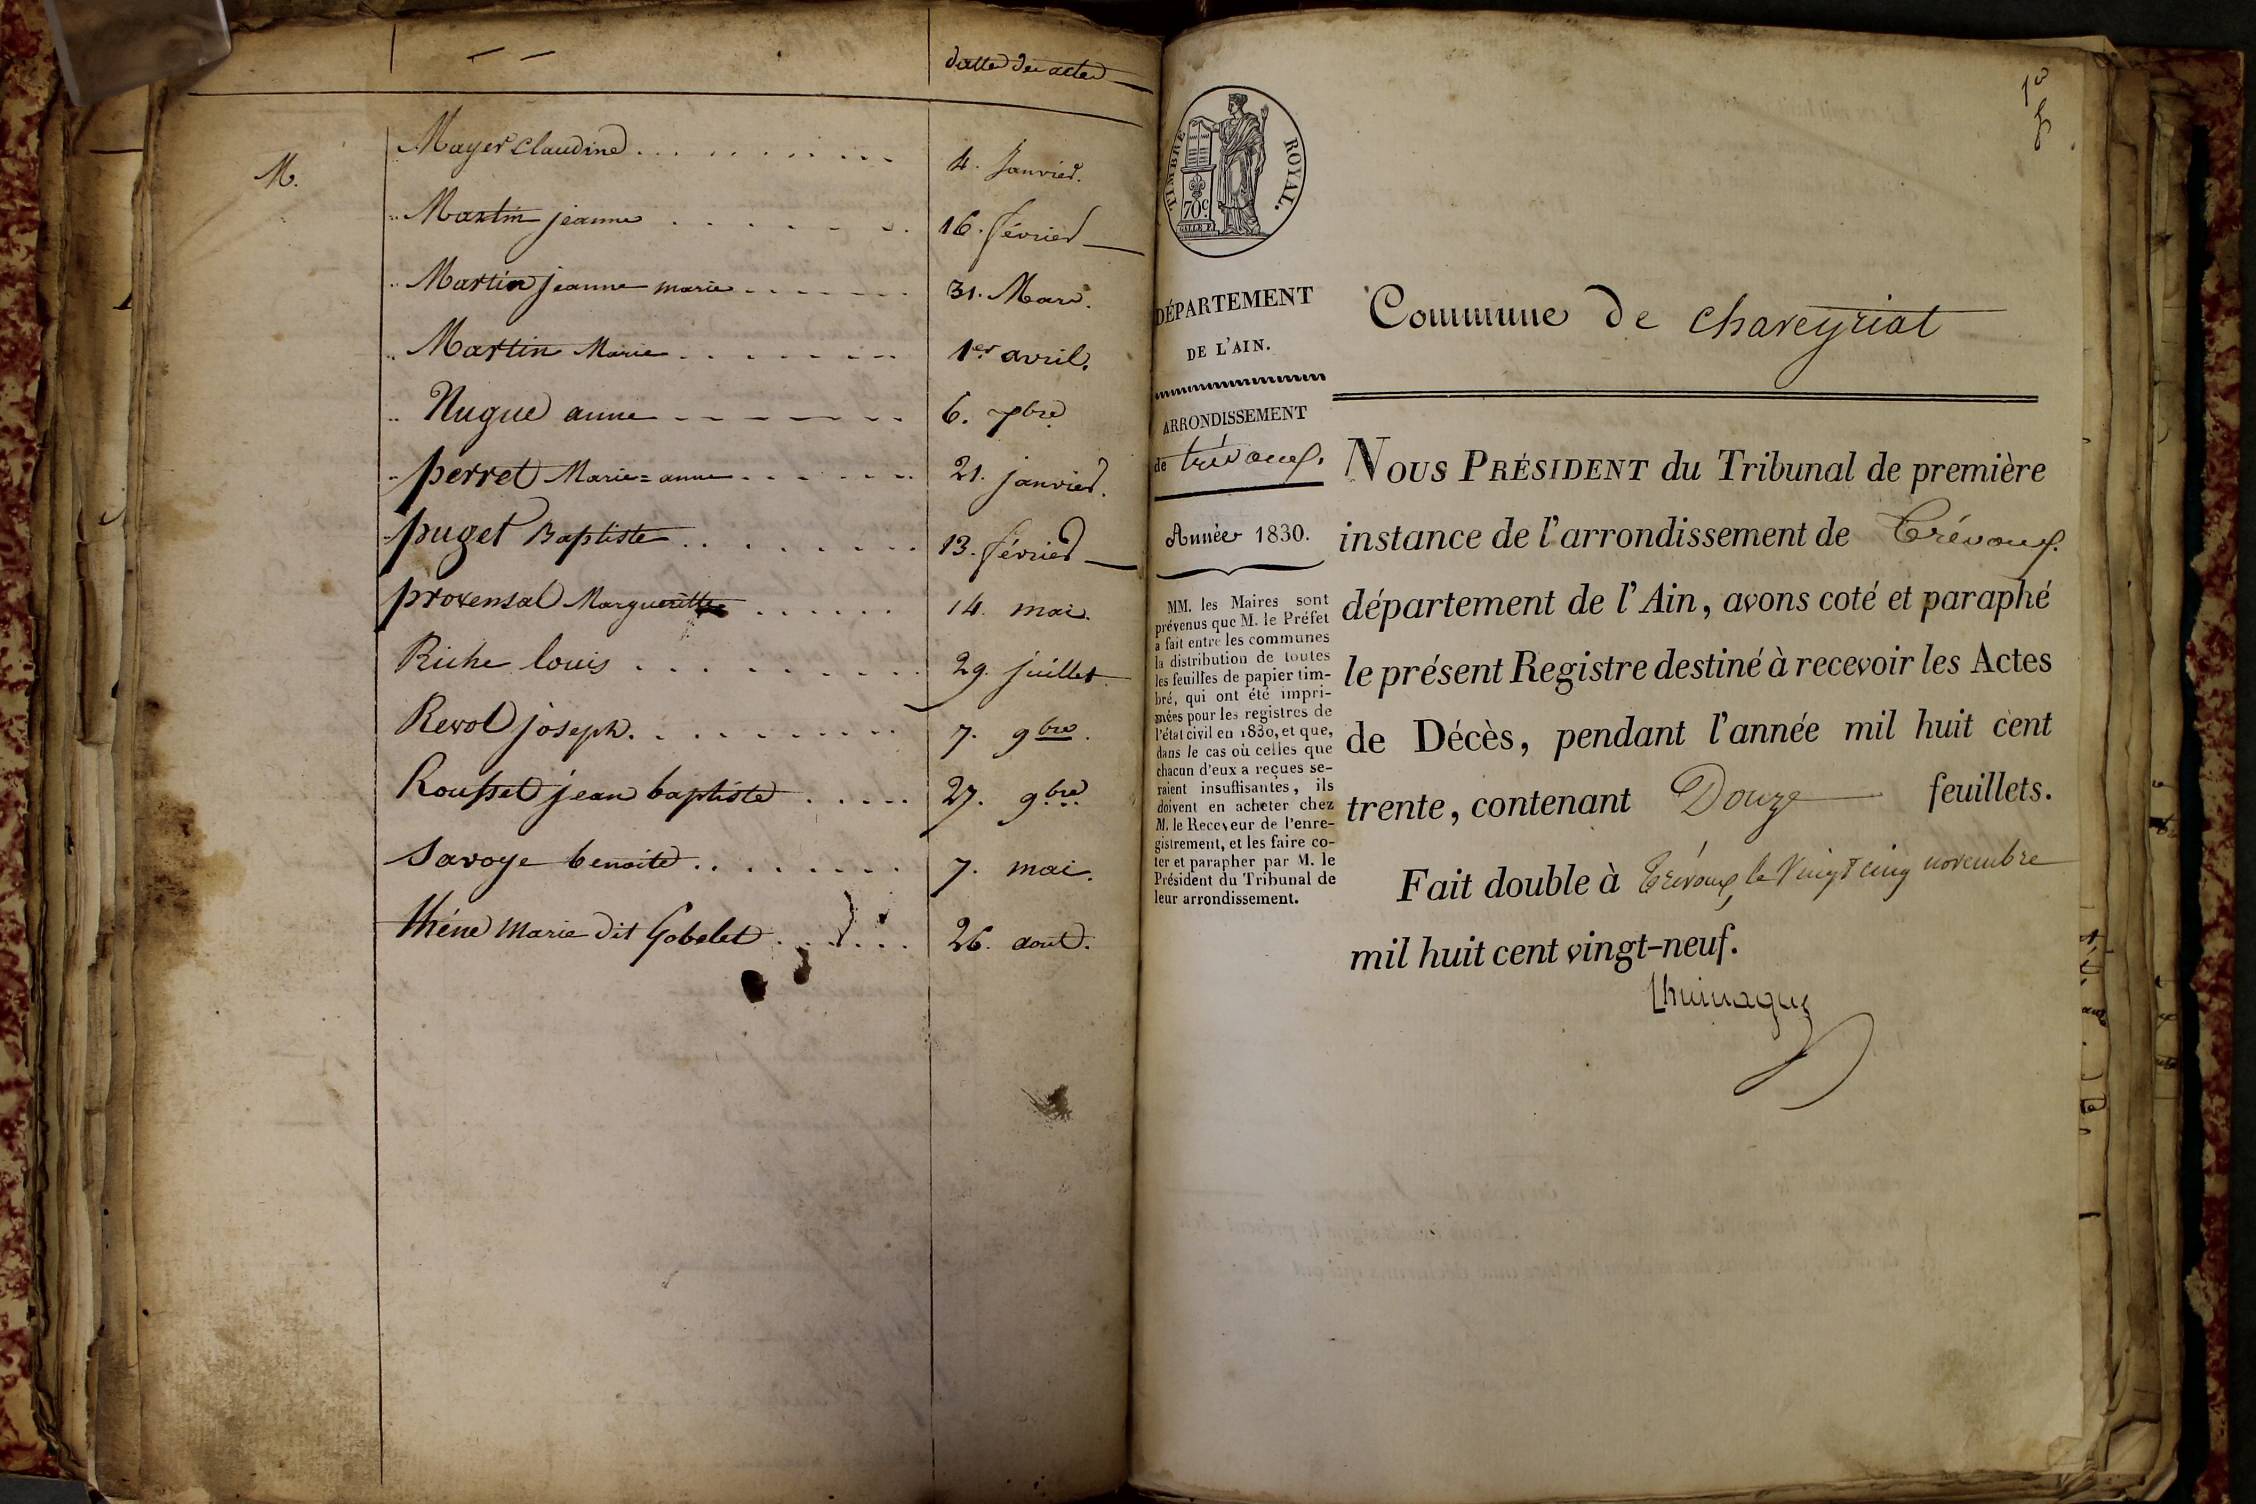 datte des actes
M.
Mayer Claudine 4. janvier.
Martin jeanne 16. février
Martin jeanne marie 31. Mars.
Martin Marie 1er avril.
Nugue anne 6. 7bre
perret Marie=anne 21. janvier.
puget Baptiste 13. février
provensal Margueritte 14. mai.
Riche louis 29. juillet
Revol joseph. 7. 9bre.
Rousset jean baptiste 27. 9bre.
Savoye benoite 7. mai.
théne Marie dit Gobelet 26. aout.
TIMBRE ROYAL.
70c.
DÉPARTEMENT
DE L'AIN.
ARRONDISSEMENT
de trévoux.
Année 1830.
MM. les Maires sont
prévenus que M. le Préfet
a fait entre les communes
la distribution de toutes
les feuilles de papier tim-
bré, qui ont été impri-
mées pour les registres de
l'état civil en 1830, et que,
dans le cas où celles que
chacun d'eux a reçues se-
raient insuffisantes, ils
doivent en acheter chez
M. le Receveur de l'enre-
gistrement, et les faire co-
ter et parapher par M. le
Président du Tribunal de
leur arrondissement.
Commune de chaveyriat
NOUS PRÉSIDENT du Tribunal de première
instance de l'arrondissement de Trévoux
département de l'Ain, avons coté et paraphé
le présent Registre destiné à recevoir les Actes
de Décès, pendant l'année mil huit cent
trente, contenant Douze feuillets.
Fait double à Trévoux, le Vingt cinq novembre
mil huit cent vingt-neuf.